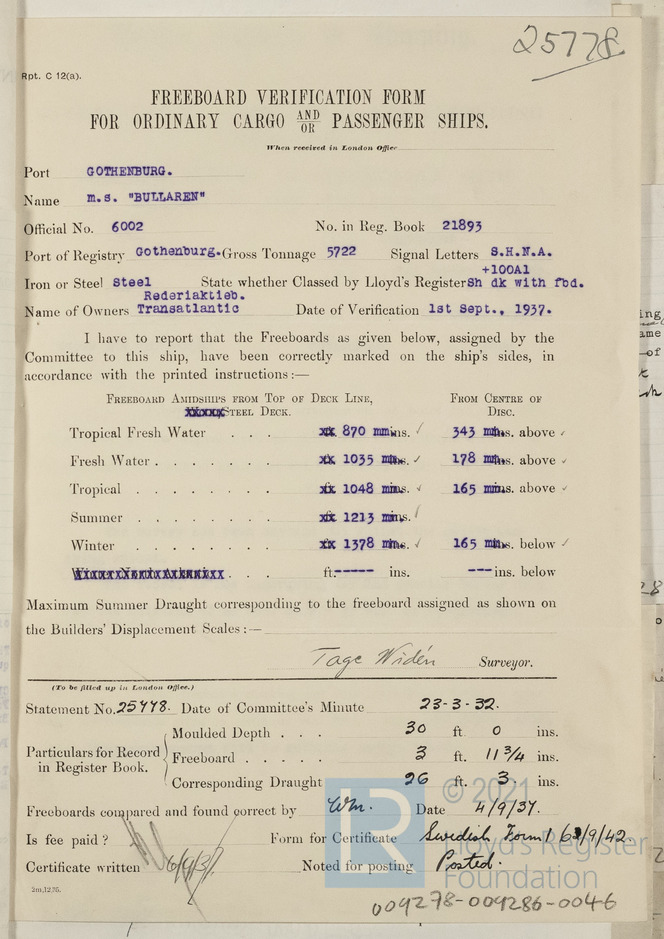 25778.
Rpt. C 12(a).
FREEBOARD VERIFICATION FORM
FOR ORDINARY CARGO AND/OR PASSENGER SHIPS.
When received in London Office
Port GOTHENBURG.
Name m.s. "BULLAREN"
Official No. 6002 No. in Reg. Book 21893
Port of Registry Gothenburg. Gross Tonnage 5722 Signal Letters S.H.N.A.
+100A1
Iron or Steel Steel State whether Classed by Lloyd's Register Sh dk with fbd.
Rederiaktieb.
Name of Owners Transatlantic Date of Verification 1st Sept., 1937.
I have to report that the Freeboards as given below, assigned by the
Committee to this ship, have been correctly marked on the ship's sides, in
accordance with the printed instructions:—
Freeboard Amidships from Top of Deck Line, From Centre of
Steel Deck. Disc.
Tropical Fresh Water . . . 870 mm ins. ✓ 343 mm ins. above ✓
Fresh Water . . . . . . . 1035 mm ins. ✓ 178 mm ins. above ✓
Tropical . . . . . . . 1048 mm ins. ✓ 165 mm ins. above ✓
Summer . . . . . . . 1213 mm ins. ✓
Winter . . . . . . . 1378 mm ins. ✓ 165 mm ins. below ✓
. . . ft. ----- ins. --- ins. below
Maximum Summer Draught corresponding to the freeboard assigned as shown on
the Builders' Displacement Scales:—
Tage Widén Surveyor.
(To be filled up in London Office.)
Statement No. 25778. Date of Committee's Minute 23-3-32.
Moulded Depth . . . 30 ft. 0 ins.
Particulars for Record in Register Book. Freeboard . . . . . 3 ft. 11 3/4 ins.
Corresponding Draught 26 ft. 3. ins.
Freeboards compared and found correct by Wm. Date 4/9/37.
Is fee paid ? Form for Certificate Swedish Form
Certificate written 6/9/37. Noted for posting Posted.
2m,12,35.
© 2021
Lloyd's Register
Foundation
009278-009286-0046